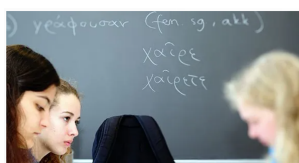 ) γράφουσαν (fem sg, akk)
χαῖρε
χαίρετε